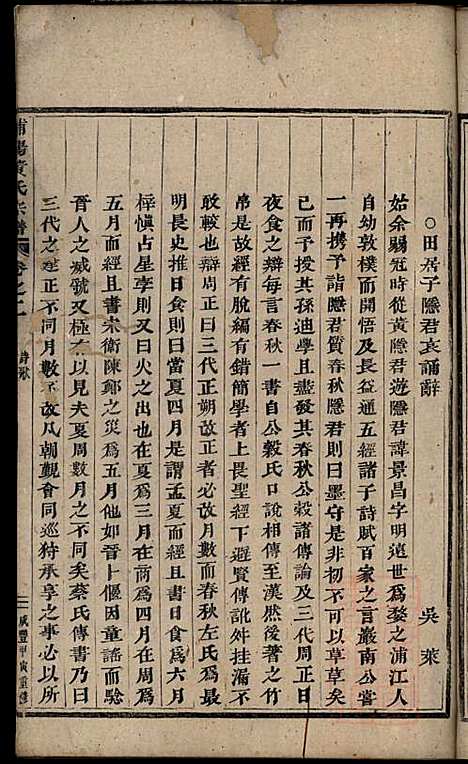 ○田居子隱君哀誦辭
吳萊
始余弱冠時從黃隱君遊隱君諱景昌字明遠世為婺之浦江人
自幼敦樸而開悟及長益通五經諸子詩賦百家之言巖南公嘗
一再携予詣隱君質春秋隱君則曰墨守是非切不可以草草矣
已而予授其孫迪學且盡發其春秋公穀諸傳論及三代周正日
夜食之辯每言春秋一書自公穀氏口說相傳至漢然後著之竹
帛是以脫有錯簡學者上畏聖經下避賢傳訛舛挂漏不
敢較也辯周正曰三代正朔改正者必改月數而春秋左氏為
明長史推日食則曰當夏四月是謂孟夏而經且書日食為六月
梓愼占星孛則又曰火出在夏為三月在商為四月在周為
五月而經且書宋衛陳鄭之災為五月他如晉卜偃因童謠而驗
晉人之滅虢又極有以見夫夏周數月之不同矣蔡氏傳書乃曰
三代之建正不同月數不改凡朝覲會同巡狩承享之事必以所
浦陽黃氏宗譜 卷之二 詩歌
咸豐甲寅重修